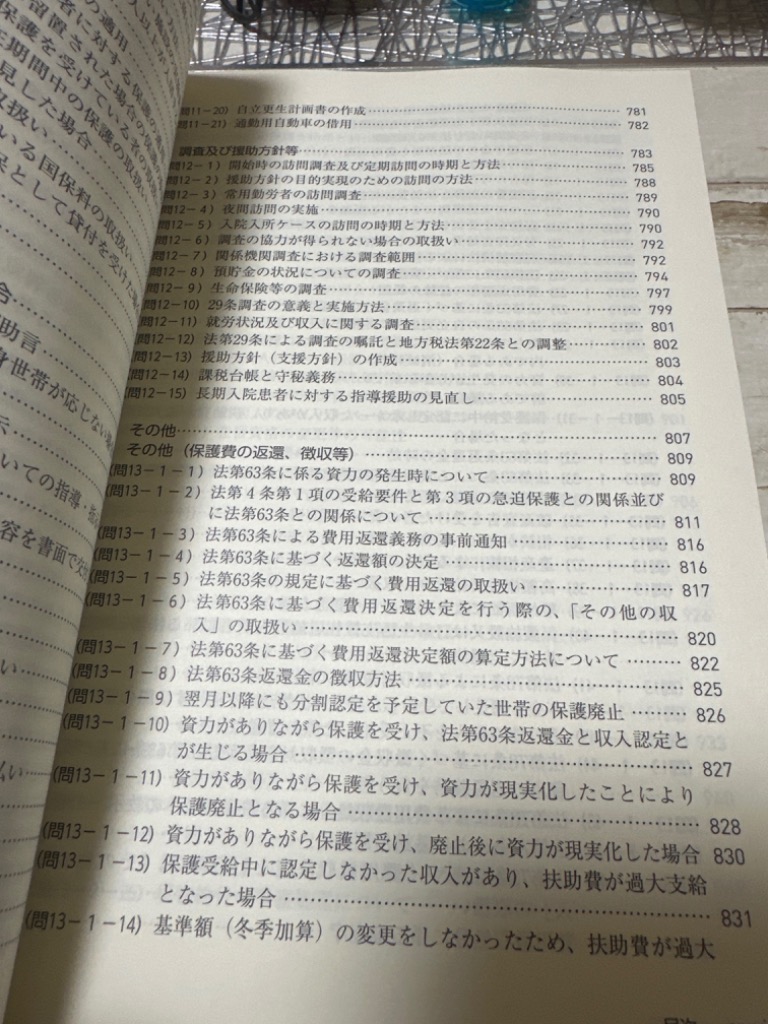 の適用
者に対する保護の適
留置された場合の保護の
保護を受けている者の現
期間中の保護の取扱い
見した場合
取扱い
いる国保料の取扱い
保として貸付を受けた
合
助言
身世帯が応じない場
示
いての指導・指
容を書面で交
い
払い
い
(問11-20) 自立更生計画書の作成 781
(問11-21) 通勤用自動車の借用 782
調査及び援助方針等 783
(問12-1) 開始時の訪問調査及び定期訪問の時期と方法 785
(問12-2) 援助方針の目的実現のための訪問の方法 788
(問12-3) 常用勤労者の訪問調査 789
(問12-4) 夜間訪問の実施 790
(問12-5) 入院入所ケースの訪問の時期と方法 790
(問12-6) 調査の協力が得られない場合の取扱い 792
(問12-7) 関係機関調査における調査範囲 792
(問12-8) 預貯金の状況についての調査 794
(問12-9) 生命保険等の調査 797
(問12-10) 29条調査の意義と実施方法 799
(問12-11) 就労状況及び収入に関する調査 801
(問12-12) 法第29条による調査の嘱託と地方税法第22条との調整 802
(問12-13) 援助方針（支援方針）の作成 803
(問12-14) 課税台帳と守秘義務 804
(問12-15) 長期入院患者に対する指導援助の見直し 805
その他 807
その他（保護費の返還、徴収等） 809
(問13-1-1) 法第63条に係る資力の発生時について 809
(問13-1-2) 法第4条第1項の受給要件と第3項の急迫保護との関係並び
に法第63条との関係について 811
(問13-1-3) 法第63条による費用返還義務の事前通知 816
(問13-1-4) 法第63条に基づく返還額の決定 816
(問13-1-5) 法第63条の規定に基づく費用返還の取扱い 817
(問13-1-6) 法第63条に基づく費用返還決定を行う際の、「その他の収
入」の取扱い 820
(問13-1-7) 法第63条に基づく費用返還決定額の算定方法について 822
(問13-1-8) 法第63条返還金の徴収方法 825
(問13-1-9) 翌月以降にも分割認定を予定していた世帯の保護廃止 826
(問13-1-10) 資力がありながら保護を受け、法第63条返還金と収入認定と
が生じる場合 827
(問13-1-11) 資力がありながら保護を受け、資力が現実化したことにより
保護廃止となる場合 828
(問13-1-12) 資力がありながら保護を受け、廃止後に資力が現実化した場合 830
(問13-1-13) 保護受給中に認定しなかった収入があり、扶助費が過大支給
となった場合 831
(問13-1-14) 基準額（冬季加算）の変更をしなかったため、扶助費が過大